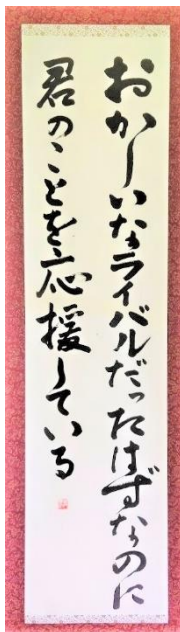 おかしいなライバルだったはずなのに
君のことを応援している